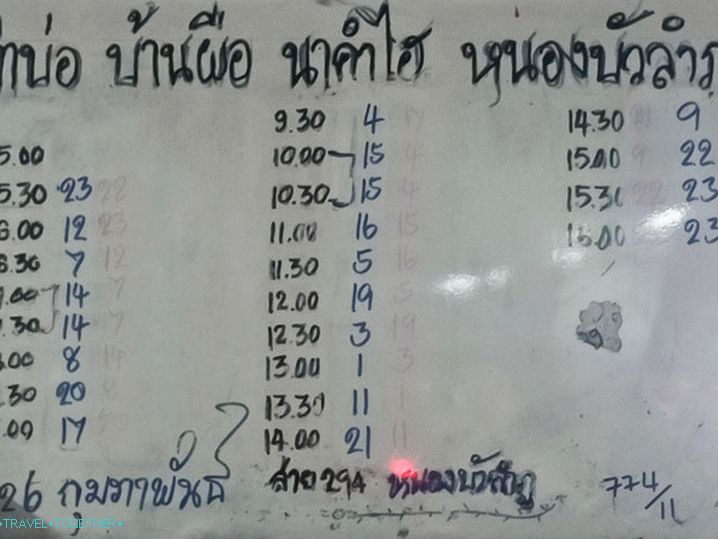 บ่อ บ้านผือ นาคำไฮ หนองบัวลำภ
9.30 4 14.30 9
5.00 10.00 15 15.00 22
5.30 23 10.30 15 15.30 23
6.00 12 11.00 16 16.00 23
6.30 7 11.30 5
7.00 14 12.00 19
7.30 14 12.30 3
8.00 8 13.00 1
8.30 20 13.30 11
9.00 17 14.00 21
26 กุมภาพันธ์ สาย 294 หนองบัวลำภู 774/11
TRAVEL TOGETHER